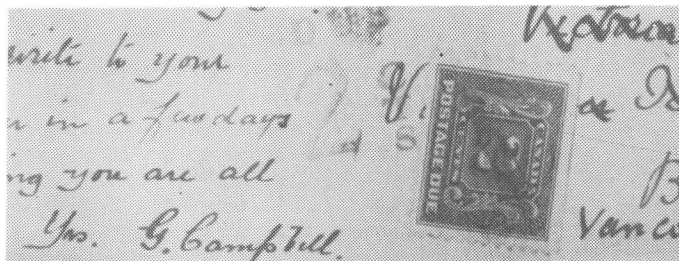 write to your
in a few days
ing you are all
Yrs. G. Campbell.
2
S
POSTAGE DUE
CANADA
CENTS
2
B
Vanco